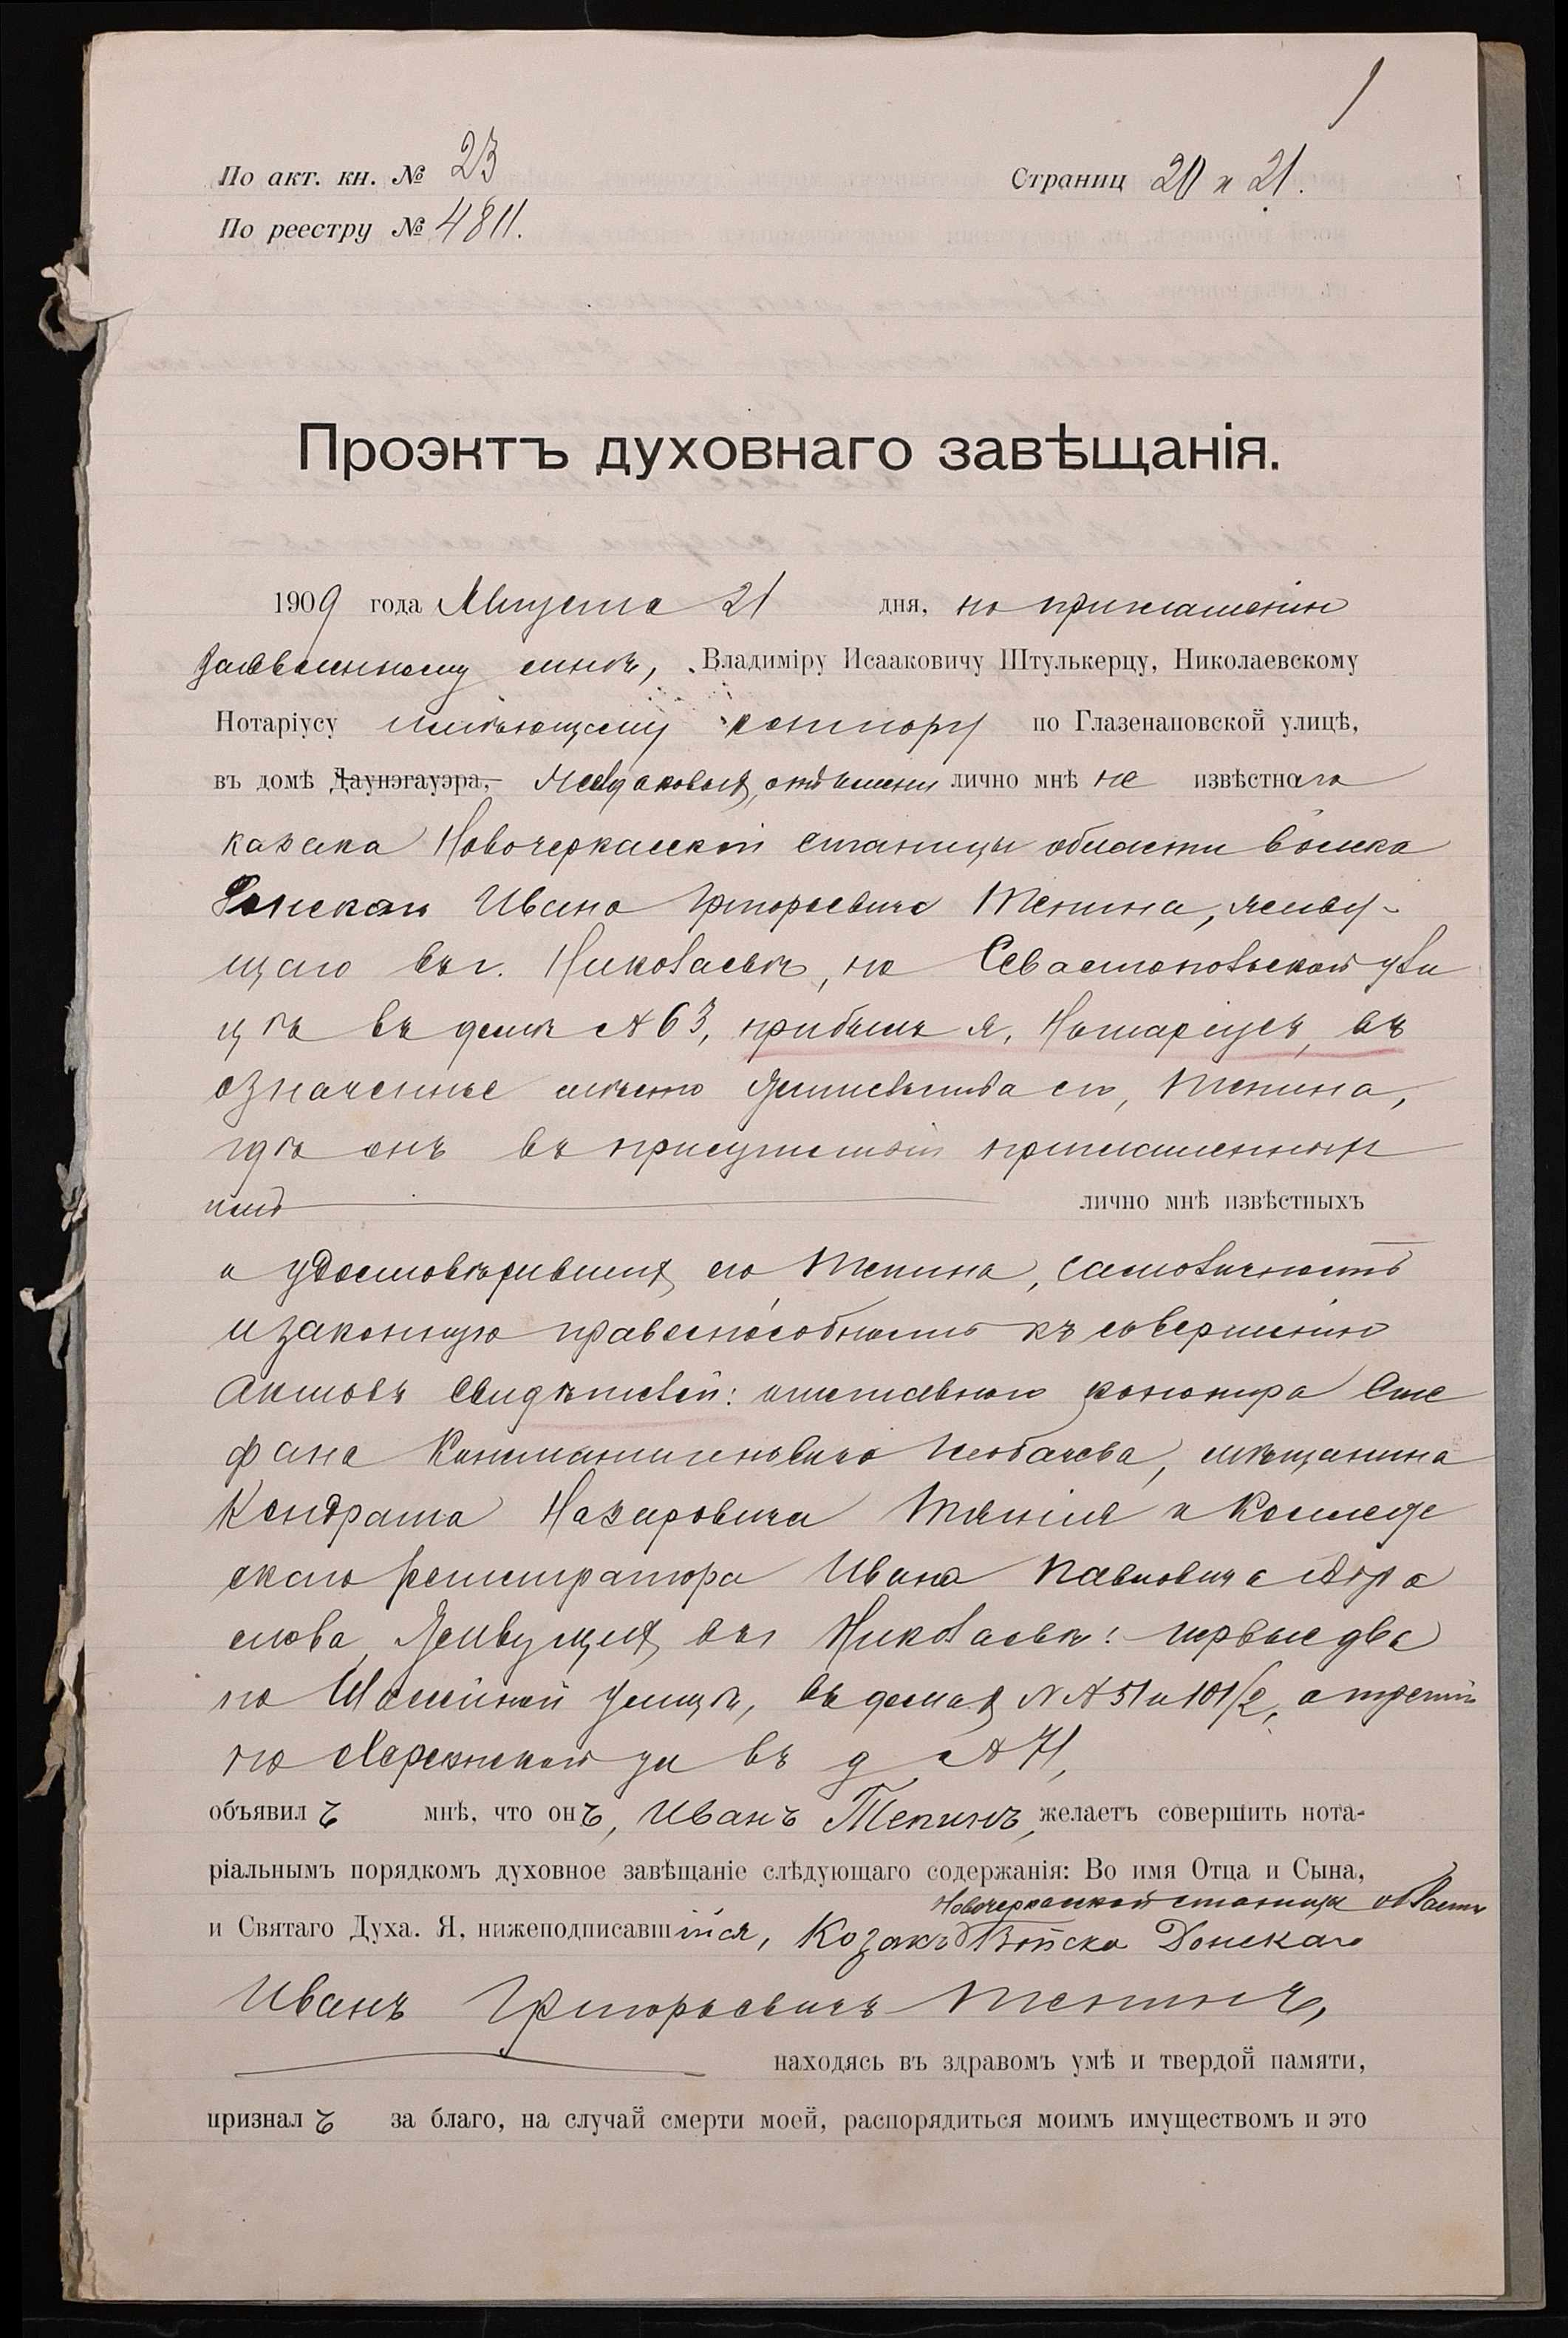 1
По акт. кн. № 23
Страниц 20 и 21.
По реестру № 4811.
Проэктъ духовнаго завѣщанія.
1909 года Августа 21 дня, по приглашенію
заявленному мнѣ, Владиміру Исааковичу Штулькерцу, Николаевскому
Нотаріусу имѣющему контору по Глазенаповской улицѣ,
въ домѣ Даунэгауэра, лично мнѣ не извѣстнаго
казака Новочеркасской станицы области войска
Донскаго Ивана Григорьевича Тепина, живу-
щаго въ г. Николаевѣ, по Севастопольской ули
цѣ въ домѣ № 63, прибылъ я, Нотаріусъ, въ
означенное мѣсто жительства его, Тепина,
гдѣ онъ въ присутствіи приглашенныхъ
имъ лично мнѣ извѣстныхъ
и удостовѣрившихъ его Тепина, самоличность
и законную правоспособность къ совершенію
актовъ свидѣтелей: отставного Сте
фана Константиновича мѣщанина
Кондрата Назаровича и Коллеж
скаго регистратора Ивана Павловича
живущихъ въ г Николаевѣ: первые два
по улицѣ, въ домахъ №№ 51 и 101/2, а третій
по Херсонской ул въ д № 71,
объявилъ мнѣ, что онъ, Иванъ Тепинъ, желаетъ совершить нота-
ріальнымъ порядкомъ духовное завѣщаніе слѣдующаго содержанія: Во имя Отца и Сына,
Новочеркасской станицы области
и Святаго Духа. Я, нижеподписавшійся, Козакъ Войска Донскаго
Иванъ Григорьевичъ Тепинъ,
находясь въ здравомъ умѣ и твердой памяти,
призналъ за благо, на случай смерти моей, распорядиться моимъ имуществомъ и это